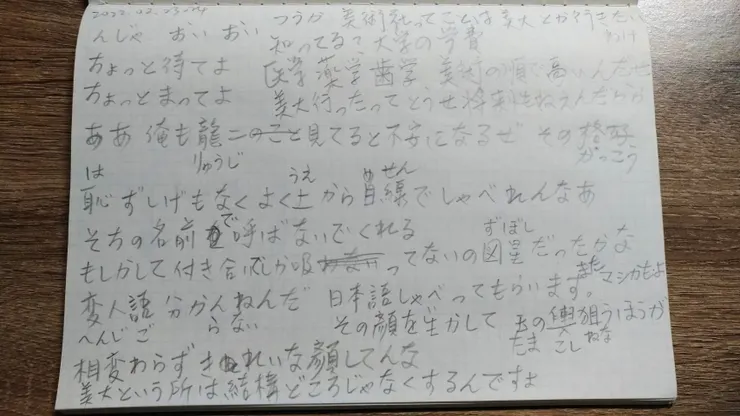 2022.02.23-24
つうか 美術系ってことは美大とか行きたいわけ
んじゃ おい おい
知ってる？大学の学費
ちょっと待てよ
医学 薬学 歯学 美術の順で高いんだぜ
ちょっとまってよ
美大行ったってどうせ将来性ねえんだから
ああ 俺も龍二のこと見てると不安になるぜ その
りゅうじ
がっこう
は うえ せん
恥ずしげもなくよく上から目線でしゃべれんなあ
そちの名前で呼ばないでくれる
ずぼし
もしかして付き合いでしか吸ってないの図星だったかな
変人語 分かんねんだ 日本語しゃべってもらいます。
マシかもよ
へんじご らない
その顔を生かして 玉の輿狙うほうが
たま こし ねな
相変わらずきれいな顔してんな
美大という所は結構どころじゃなくするんですよ